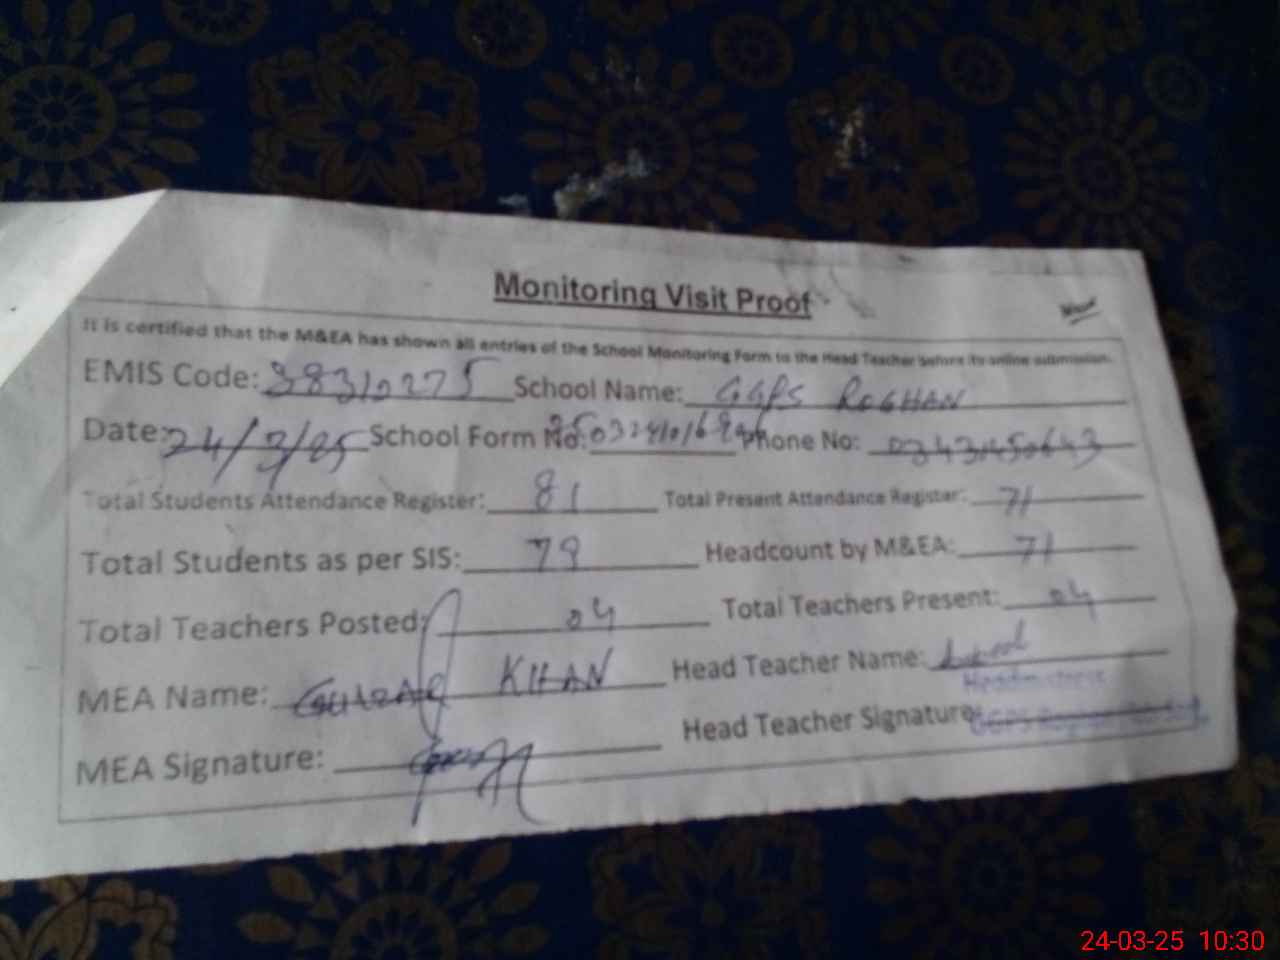 Monitoring Visit Proof
It is certified that the M&EA has shown all entries of the School Monitoring Form to the Head Teacher before its online submission.
EMIS Code: 38310275 School Name: GGPS ROGHAN
Date: 24/3/25 School Form No: Phone No: 03431450643
Total Students Attendance Register: 81 Total Present Attendance Register: 71
Total Students as per SIS: 79 Headcount by M&EA: 71
Total Teachers Posted: 04 Total Teachers Present: 04
MEA Name: KHAN Head Teacher Name:
Headmistress
MEA Signature: Head Teacher Signature: GGPS Roghan
24-03-25 10:30